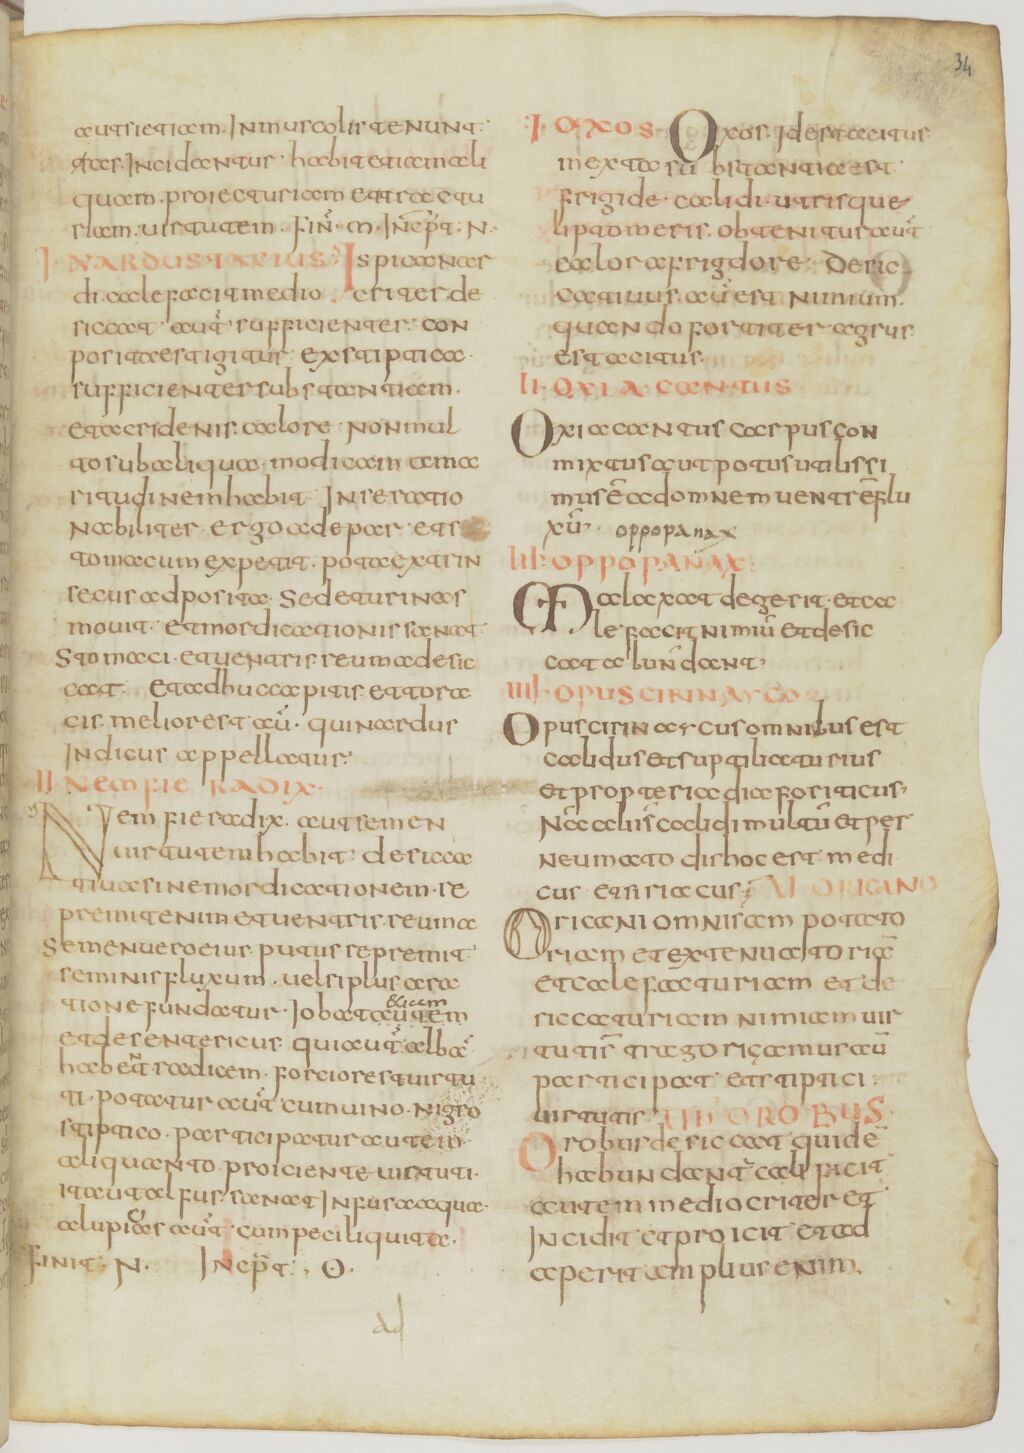 34
aut sietiam. In muscolis tenunt
tas. Incidantur habit etiam ali
quam. proiecturiam et tractu
riam. uirtutem. Fin̅. M. Incp̅t. N.
I. NARDUSTARIUS Ispica nar
di. calefacit mediocriter. de
siccat aut̅ sufficienter. con
posita est igitur exstiptica
sufficienter substantiam.
et acridenis. calore non mul
to sub aliqua. modicam ama
ritudinem habit. Inseratio
Nabiliter ergo ad epar et s
tomacum expetit. pota extrin
secus adposita. Sed et urinas
mouit. et mordicationis sanat
Stomaci. et uentris. reuma desic
cat. et adhuc capitis. et tora
cis. melior est au̅. qui nardus
Indicus appellatur.
II. NEMFIE RADIX.
Nemfie radix. aut semen
uirtutem habit. desicca
tiua sine mordicationem. re
premit enim et uentris. reuma
Semen uero eius. putus repremit
seminis fluxum. uel si plus ara
tione fundatur. Iobat autem
etiam
et desentericus. qui aut̅ alba̅
habent radicem. forcior est uirtu
ti. potatur aut̅ cum uino. nigro
stiptico. participatur autem
aliquanto proiciente uirtuti.
ita ut alfus sanat Infusa aqua.
alupicias aut̅ cum peci liquita.
Finit. N. Incp̅t. O.
ad
I. OXOS. Oxos. Id est acitus
mexta su̅bstantia est
frigide. calidi. utrisque
liptomeris. obtenitur aut̅
calor a frigdore. Desic
catiuus. au̅ est nimium.
quando fortiter agrus
est acitus.
II. OXIACANTUS
Oxiacantus carpus con
mixtus aut potus utilissi
mus e̅ ad omnem uentre̅ flu
xu̅. oppopanax
III. OPPOPANAX.
Malaxat degerit. et ca
lefacit nimiu̅ et desic
cat abundant.
IIII. OPUSCIRINARCO
Opuscirinarcus omnibus est
calidus et suptiliaturius
et propteria diaforiticus.
Na̅ alus̅ calidi multu̅ et per
neumatodis hoc est medi
cus et siriacus. VI. ORIGANO
Origani omnis am potato
riam et extenuatoria̅
et calefacturiam et de
siccaturiam nimiam uir
tutis̅ tragoriçamus au̅
participat et stiptici
uirtutis. VII. OROBUS
Orobus desiccat quide̅
habundant̅. calificit
autem mediocriter et
Incidit et proicit et ad
aperit amplius enim.